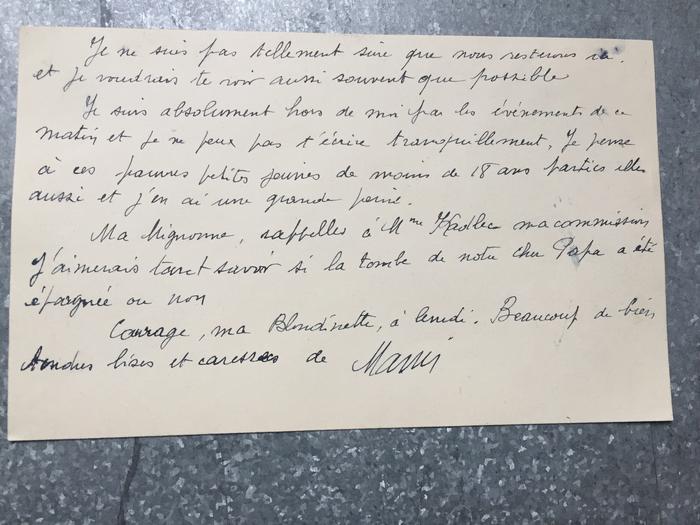 Je ne suis pas tellement sûre que nous resterons ici.
et je voudrais te voir aussi souvent que possible
Je suis absolument hors de moi par les événements de ce
matin et je ne peux pas t'écrire tranquillement. Je pense
à ces pauvres petites jeunes de moins de 18 ans parties elles
aussi et j'en ai une grande peine.
Ma Mignonne, rappelles à Mme Kadlec ma commission
J'aimerais tant savoir si la tombe de notre cher Papa a été
épargnée ou non
Courage, ma Blondinette, à lundi. Beaucoup de bien
tendres bises et caresses de